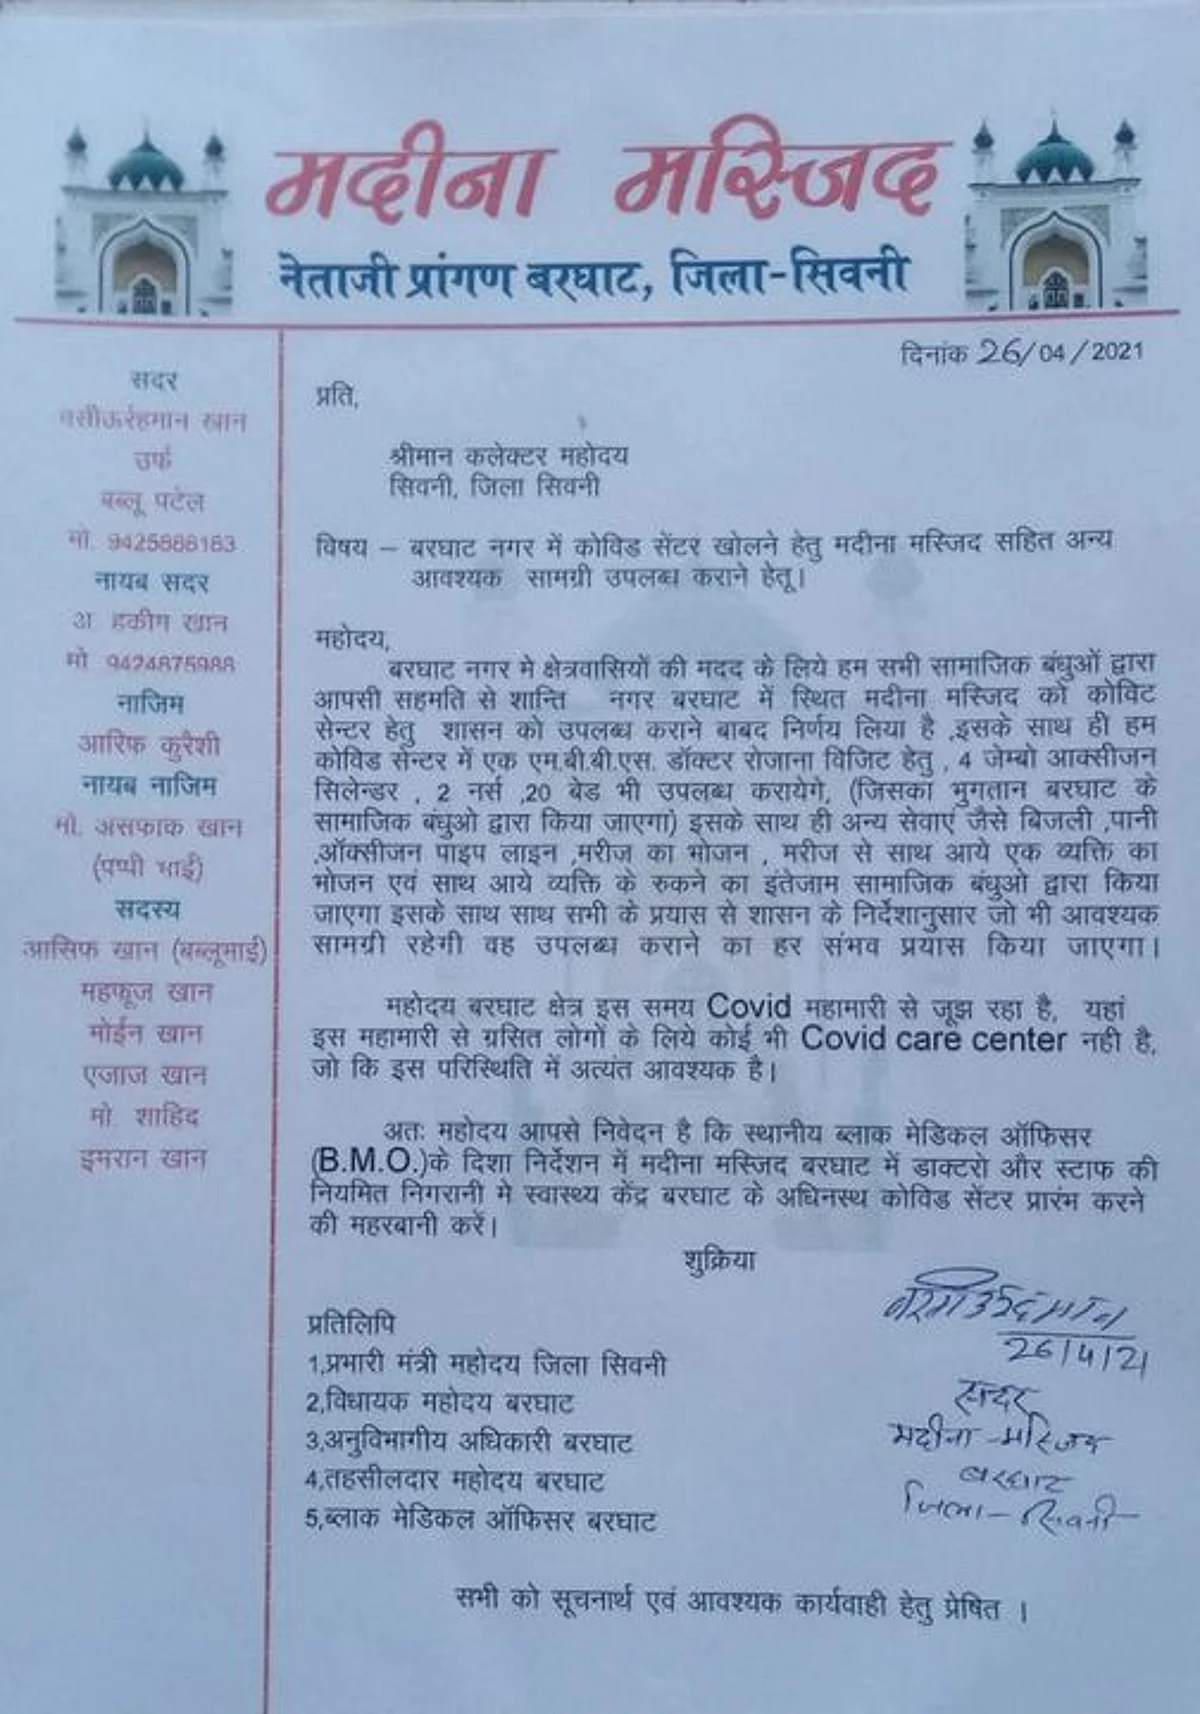 मदीना मस्जिद
नेताजी प्रांगण बरघाट, जिला-सिवनी
दिनांक 26/04/2021
सदर
वसीऊर्रहमान खान
उर्फ
बब्लू पटेल
मो. 9425888183
नायब सदर
अ हकीम खान
मो 9424875988
नाजिम
आरिफ कुरैशी
नायब नाजिम
मो. असफाक खान
(पप्पी भाई)
सदस्य
आसिफ खान (बब्लूभाई)
महफूज खान
मोईन खान
एजाज खान
मो. शाहिद
इमरान खान
प्रति,
श्रीमान कलेक्टर महोदय
सिवनी, जिला सिवनी
विषय – बरघाट नगर में कोविड सेंटर खोलने हेतु मदीना मस्जिद सहित अन्य
आवश्यक सामग्री उपलब्ध कराने हेतू।
महोदय,
बरघाट नगर मे क्षेत्रवासियों की मदद के लिये हम सभी सामाजिक बंधुओं द्वारा
आपसी सहमति से शान्ति नगर बरघाट में स्थित मदीना मस्जिद को कोविट
सेन्टर हेतु शासन को उपलब्ध कराने बाबद निर्णय लिया है ,इसके साथ ही हम
कोविड सेन्टर में एक एम.बी.बी.एस. डॉक्टर रोजाना विजिट हेतु , 4 जेम्बो आक्सीजन
सिलेन्डर , 2 नर्स ,20 बेड भी उपलब्ध करायेगे, (जिसका भुगतान बरघाट के
सामाजिक बंधुओ द्वारा किया जाएगा) इसके साथ ही अन्य सेवाएं जैसे बिजली ,पानी
,ऑक्सीजन पाइप लाइन ,मरीज का भोजन , मरीज से साथ आये एक व्यक्ति का
भोजन एवं साथ आये व्यक्ति के रुकने का इंतेजाम सामाजिक बंधुओ द्वारा किया
जाएगा इसके साथ साथ सभी के प्रयास से शासन के निर्देशानुसार जो भी आवश्यक
सामग्री रहेगी वह उपलब्ध कराने का हर संभव प्रयास किया जाएगा।
महोदय बरघाट क्षेत्र इस समय Covid महामारी से जूझ रहा है, यहां
इस महामारी से ग्रसित लोगों के लिये कोई भी Covid care center नही है,
जो कि इस परिस्थिति में अत्यंत आवश्यक है।
अतः महोदय आपसे निवेदन है कि स्थानीय ब्लाक मेडिकल ऑफिसर
(B.M.O.)के दिशा निर्देशन में मदीना मस्जिद बरघाट में डाक्टरो और स्टाफ की
नियमित निगरानी मे स्वास्थ्य केंद्र बरघाट के अधिनस्थ कोविड सेंटर प्रारंभ करने
की महरबानी करें।
शुक्रिया
वसीऊर्रहमान
26/4/21
सदर
मदीना-मस्जिद
बरघाट
जिला-सिवनी
प्रतिलिपि
1,प्रभारी मंत्री महोदय जिला सिवनी
2,विधायक महोदय बरघाट
3,अनुविभागीय अधिकारी बरघाट
4,तहसीलदार महोदय बरघाट
5,ब्लाक मेडिकल ऑफिसर बरघाट
सभी को सूचनार्थ एवं आवश्यक कार्यवाही हेतु प्रेषित ।